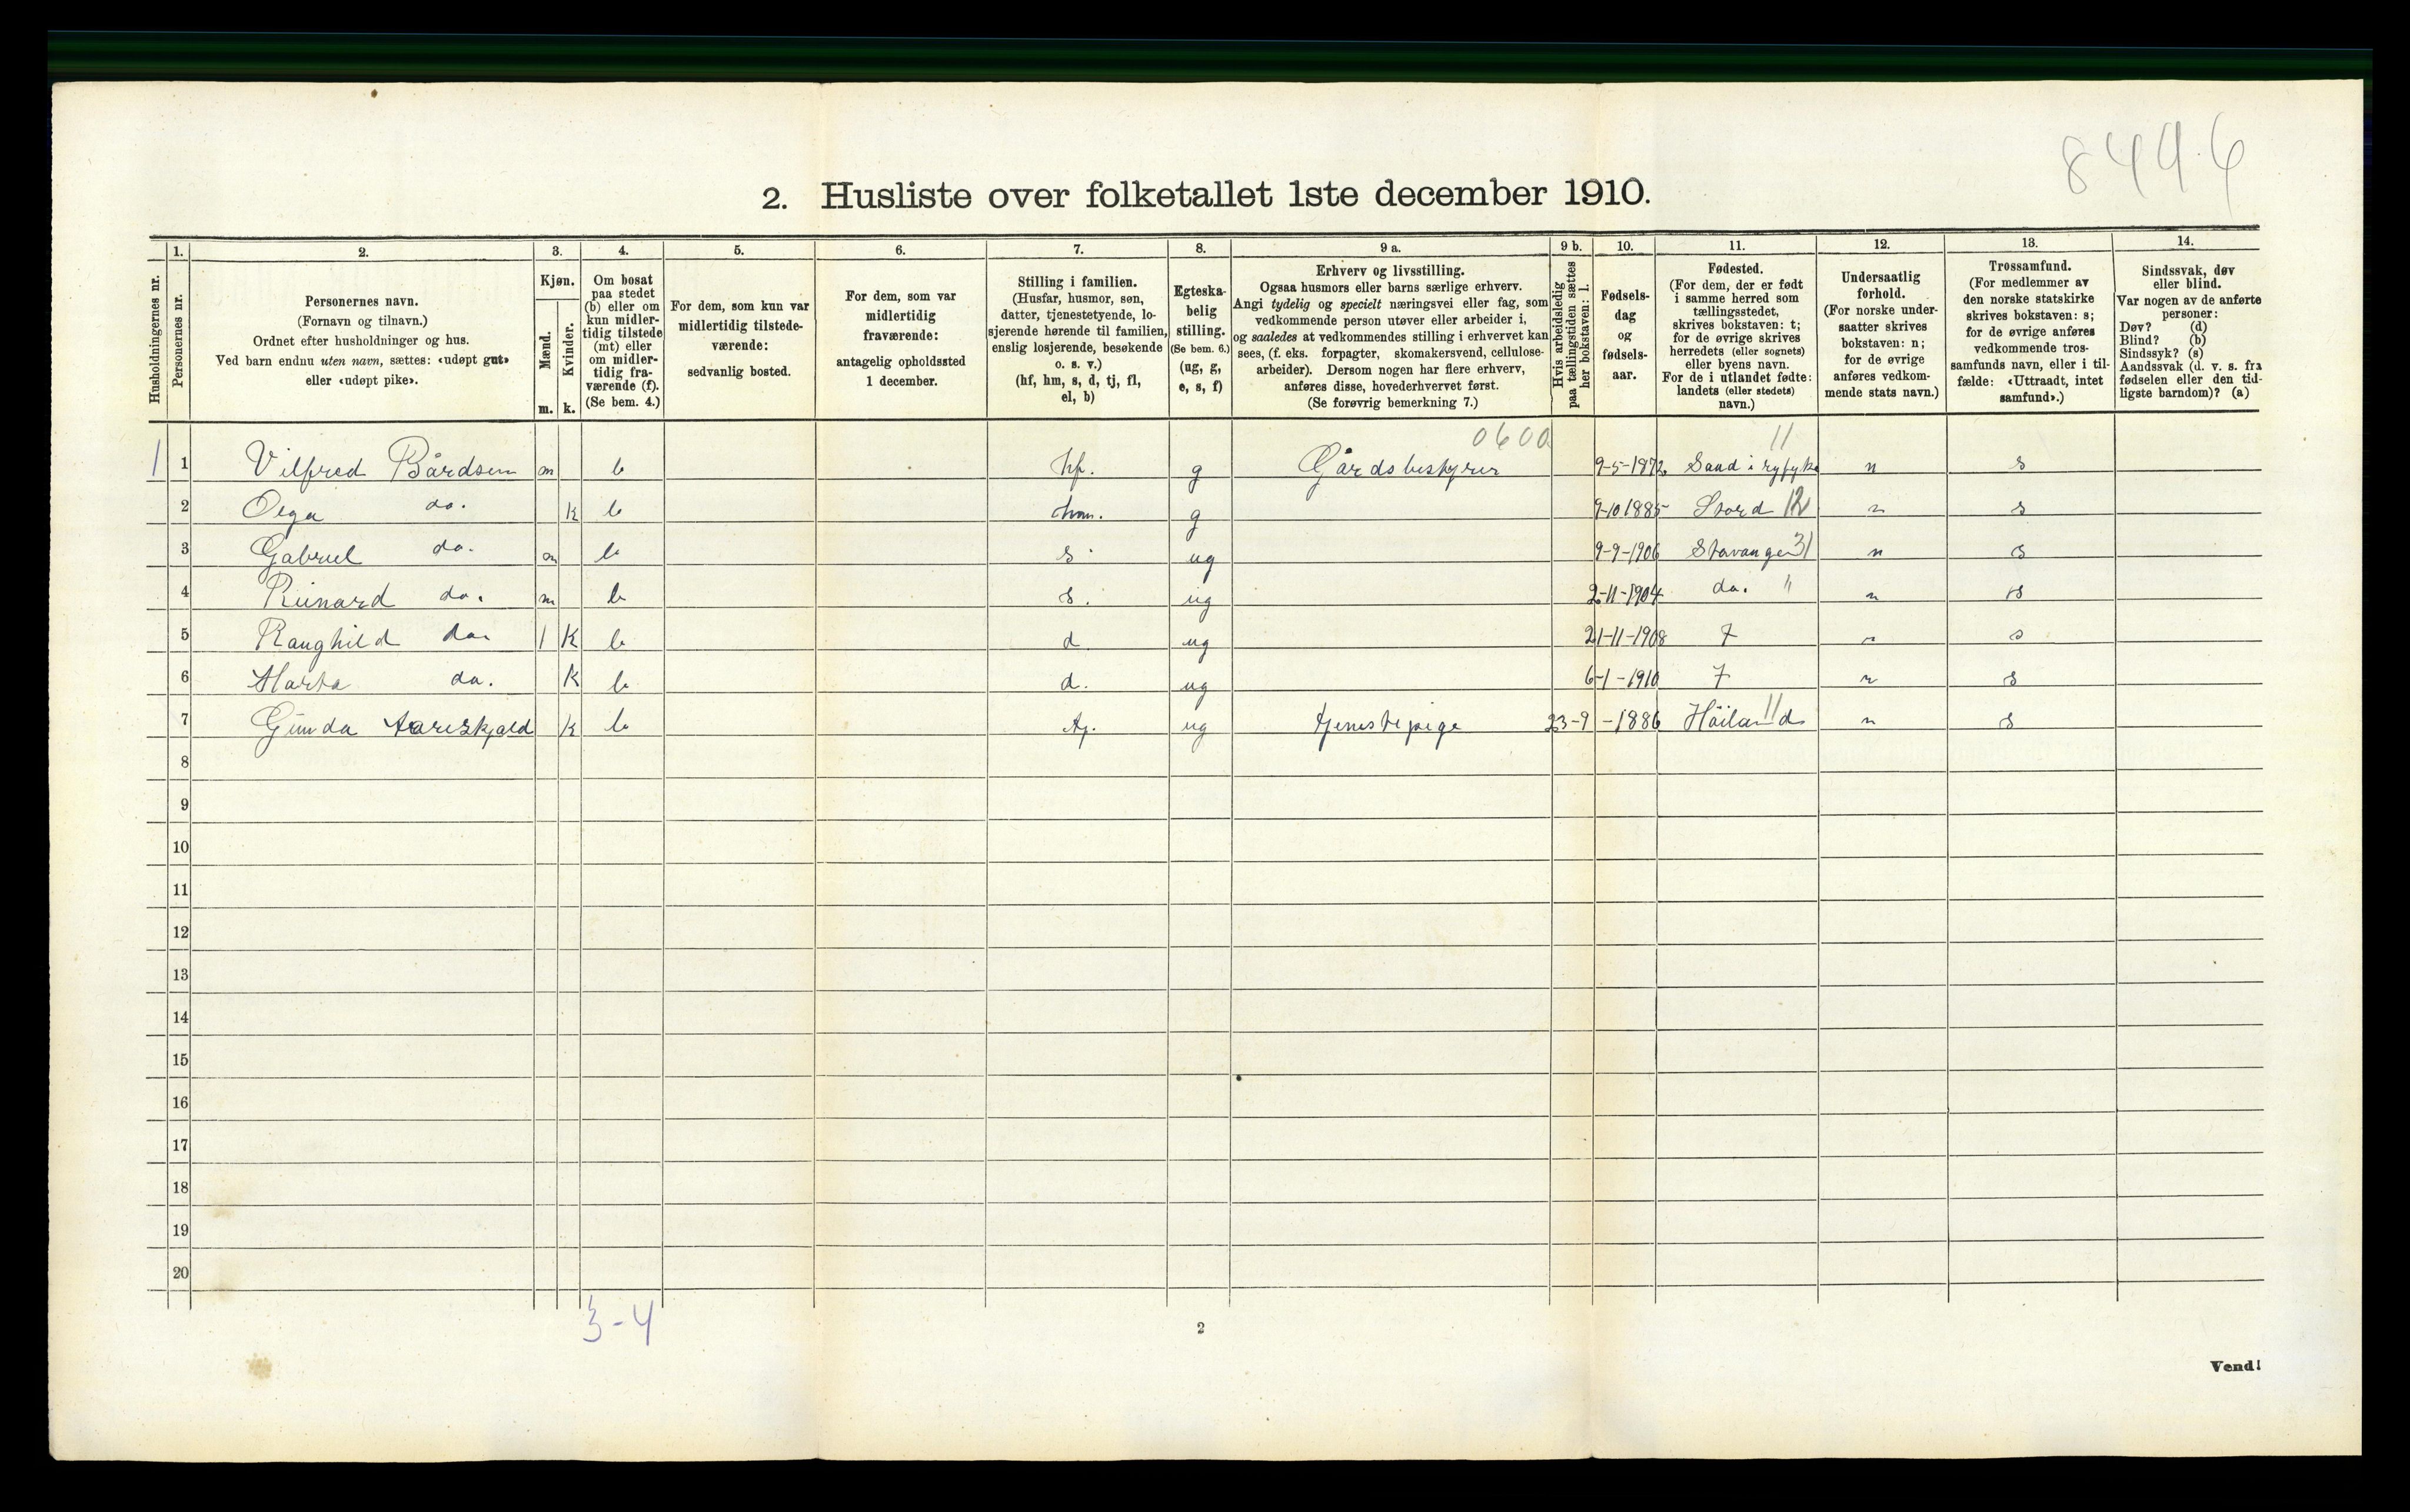 8494.6
2. Husliste over folketallet 1ste december 1910.
Husholdningernes nr.
1.
Personernes nr.
2.
Personernes navn.
(Fornavn og tilnavn.)
Ordnet efter husholdninger og hus.
Ved barn endnu uten navn, sættes: «udøpt gut»
eller «udøpt pike».
3.
Kjøn.
Mænd.
Kvinder.
m. k.
4.
Om bosat
paa stedet
(b) eller om
kun midler-
tidig tilstede
(mt) eller
om midler-
tidig fra-
værende (f).
(Se bem. 4.)
5.
For dem, som kun var
midlertidig tilstede-
værende:
sedvanlig bosted.
6.
For dem, som var
midlertidig
fraværende:
antagelig opholdssted
1 december.
7.
Stilling i familien.
(Husfar, husmor, søn,
datter, tjenestetyende, lo-
sjerende hørende til familien,
enslig losjerende, besøkende
o. s. v.)
(hf, hm, s, d, tj, fl,
el, b)
8.
Egteska-
belig
stilling.
(Se bem. 6.)
(ug, g,
e, s, f)
9 a.
Erhverv og livsstilling.
Ogsaa husmors eller barns særlige erhverv.
Angi tydelig og specielt næringsvei eller fag, som
vedkommende person utøver eller arbeider i,
og saaledes at vedkommendes stilling i erhvervet kan
sees, (f. eks. forpagter, skomakersvend, cellulose-
arbeider). Dersom nogen har flere erhverv,
anføres disse, hovederhvervet først.
(Se forøvrig bemerkning 7.)
9 b.
Hvis arbeidsledig
paa tællingstiden sættes
her bokstaven: l.
10.
Fødsels-
dag
og
fødsels-
aar.
11.
Fødested.
(For dem, der er født
i samme herred som
tællingsstedet,
skrives bokstaven: t;
for de øvrige skrives
herredets (eller sognets)
eller byens navn.
For de i utlandet fødte:
landets (eller stedets)
navn.)
12.
Undersaatlig
forhold.
(For norske under-
saatter skrives
bokstaven: n;
for de øvrige
anføres vedkom-
mende stats navn.)
13.
Trossamfund.
(For medlemmer av
den norske statskirke
skrives bokstaven: s;
for de øvrige anføres
vedkommende tros-
samfunds navn, eller i til-
fælde: «Uttraadt, intet
samfund».)
14.
Sindssvak, døv
eller blind.
Var nogen av de anførte
personer:
Døv? (d)
Blind? (b)
Sindssyk? (s)
Aandssvak (d. v. s. fra
fødselen eller den tid-
ligste barndom)? (a)
0600 11
1 1 Vilfred Bårdsen m b hf. g Gårdsbestyrer 9-5-1872 Sand i ryfylke n s
2 Olga do. k b hm. g 9-10 1885 Stord 12 n s
3 Gabriel do. m b s ug 9-9-1906 Stavanger 31 n s
4 Reinard do. m b s. ug 2-11-1904 do. " n s
5 Raughild do. 1 K b d ug 21-11-1908 7 n s
6 Marta do. K b d. ug 6-1-1910 7 n s
7 Gunda Aareskjold k b tj. ug tjenestepige 23-9-1886 Höiland 11 n s
8
9
10
11
12
13
14
15
16
17
18
19
20
3-4
2
Vend!